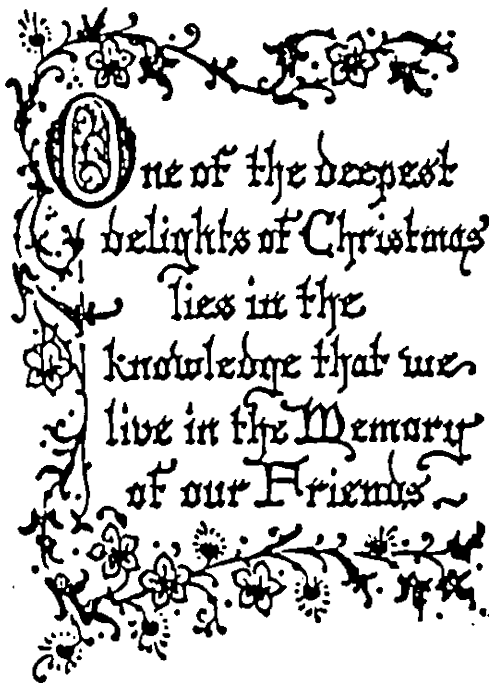 One of the deepest
delights of Christmas
lies in the
knowledge that we
live in the Memory
of our Friends~